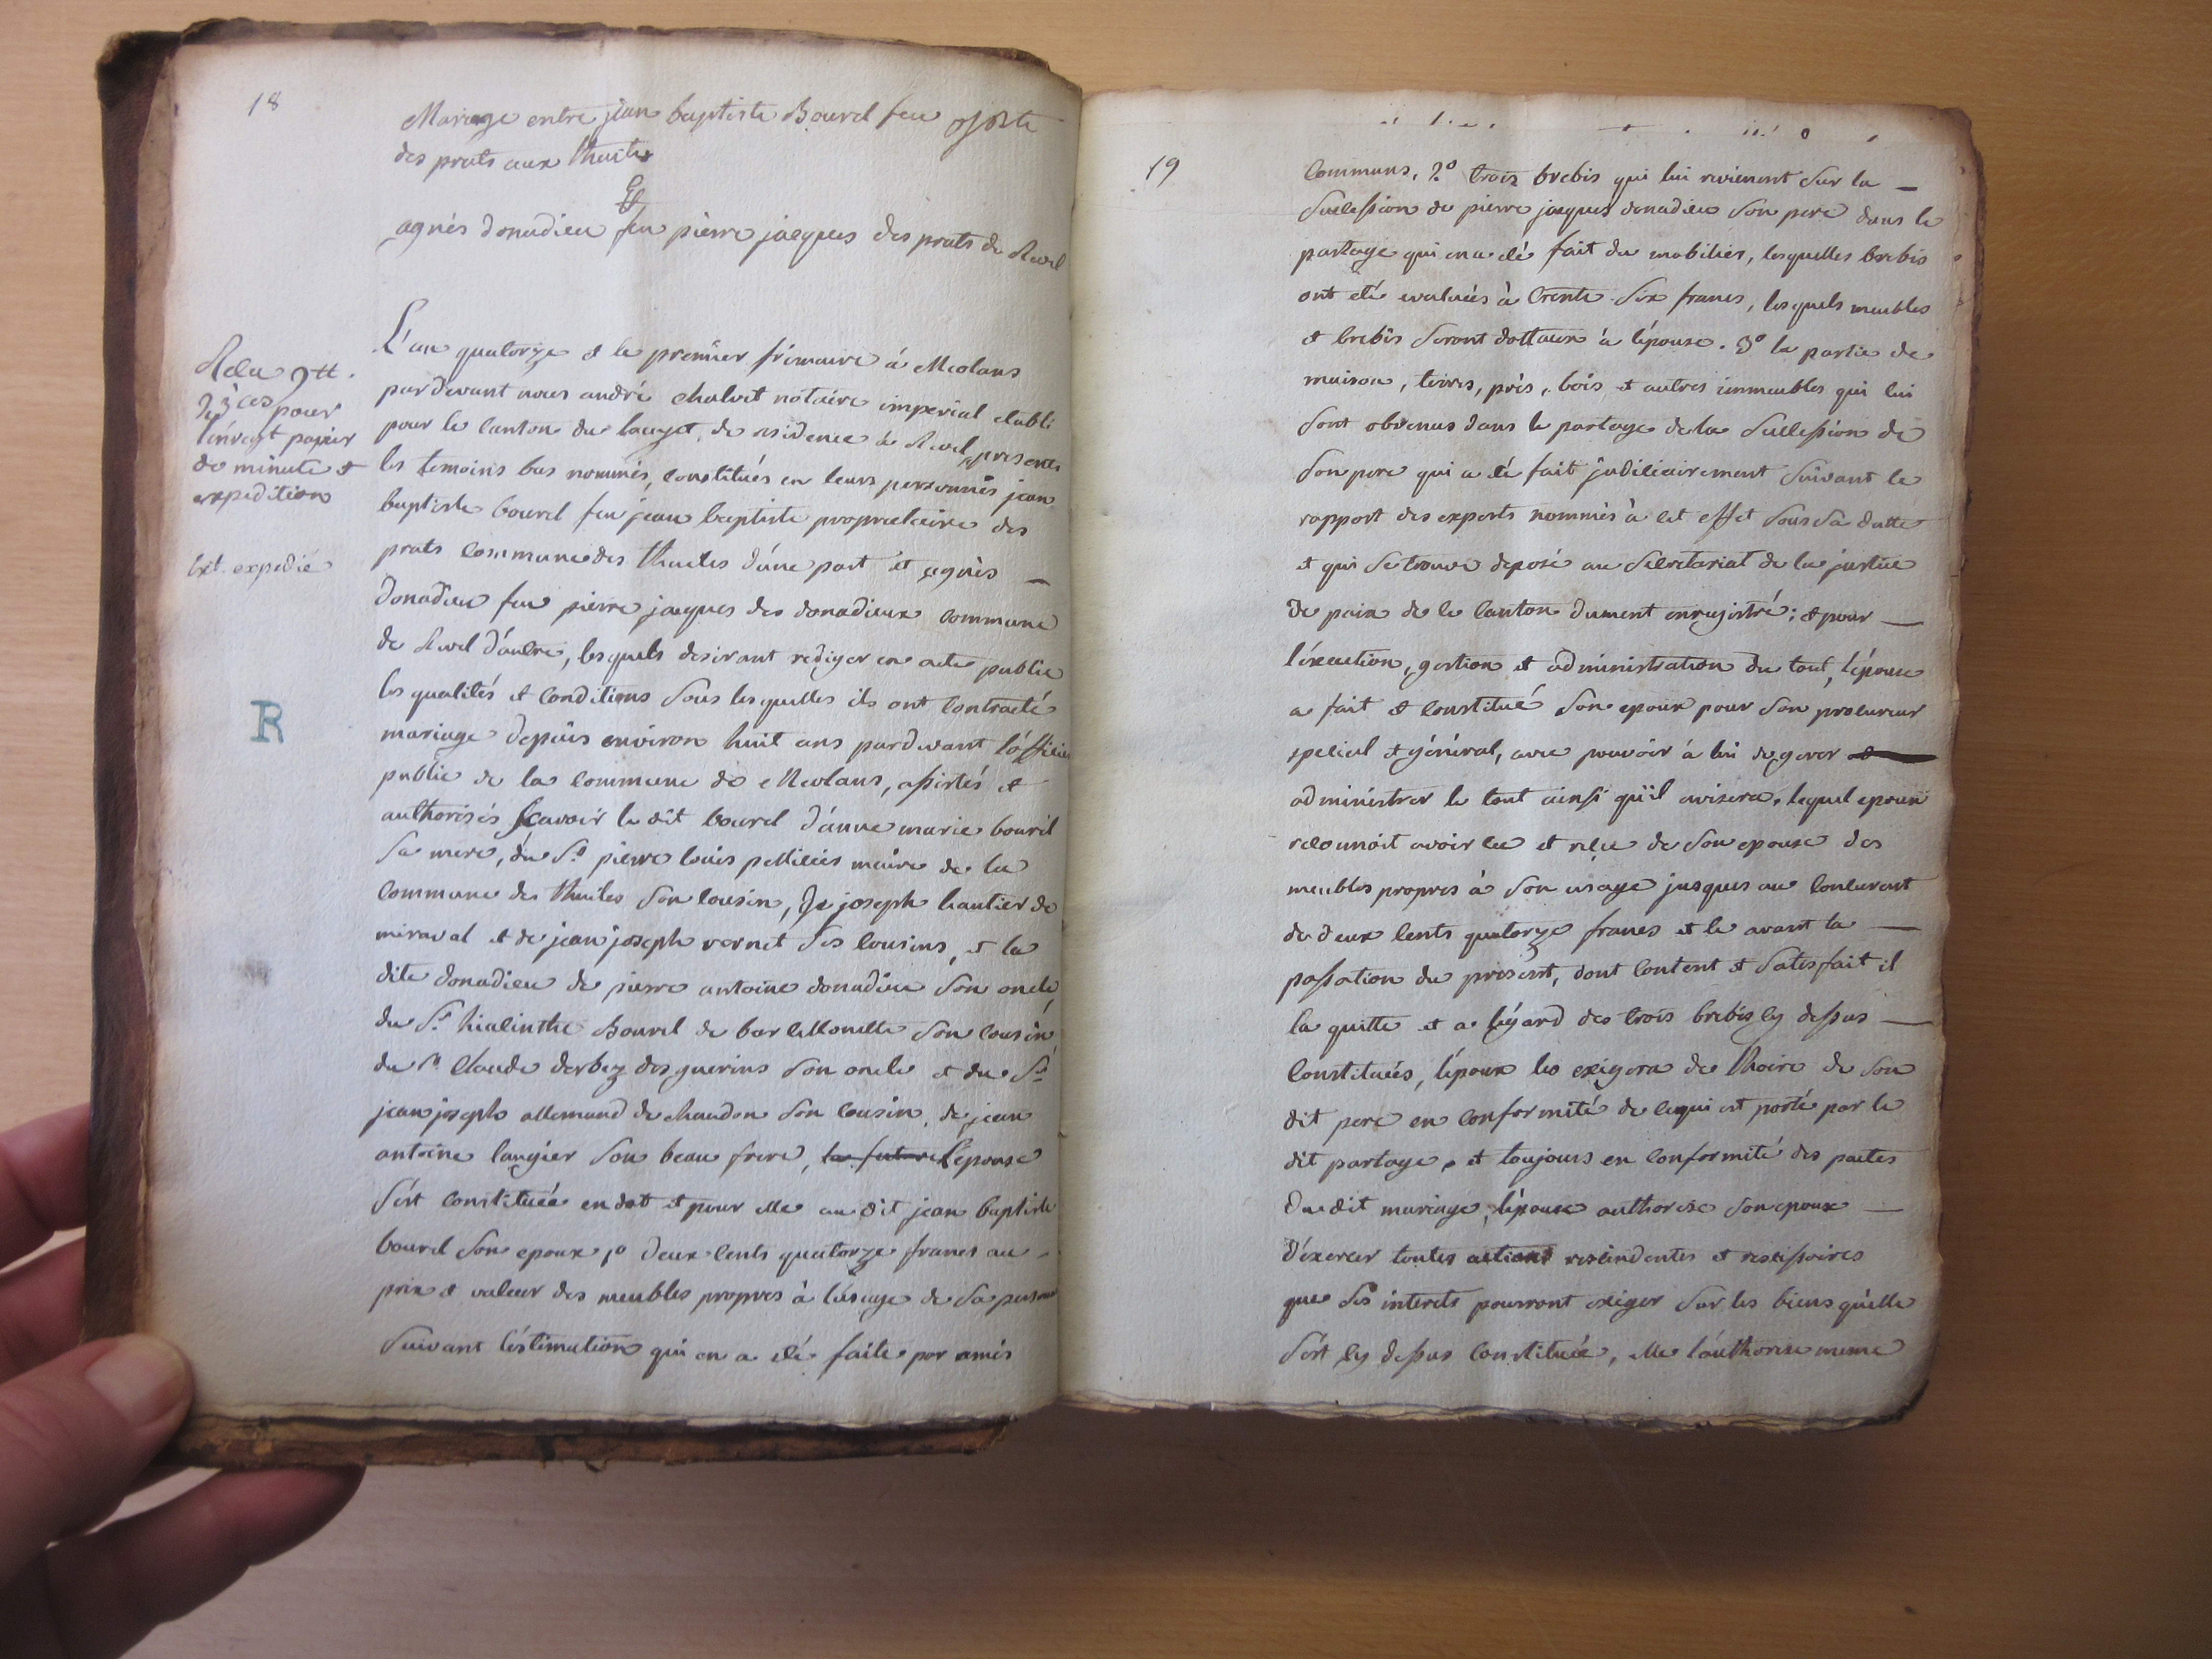 18
Mariage entre jean baptiste Bourel feu
des prats aux thuiles
Et
agnés donadieu feu pierre jacques des prats de Revel
Recu 9tt.
pour
l'enregt papier
de minute et
expedition
ext. expedié
R
L'an quatorze et le premier frimaire à Meolans
pardevant nous andré chalvet notaire imperial etabli
pour le canton du lauzet, de residence à Revel, presents
les temoins bas nommés, constitués en leurs personnes jean
baptiste bourel feu jean baptiste proprietaire des
prats commune des thuiles d'une part et agnès —
donadieu feu pierre jacques des donadieux commune
de Revel d'autre, lesquels desirant rediger en acte public
les qualités et conditions sous lesquelles ils ont contracté
mariage depuis environ huit ans pardevant l'officier
public de la commune de Meolans, assistés et
authorisés scavoir le dit bourel d'anne marie bourel
sa mere, du Sr pierre louis pellicier maire de la
commune des thuiles son cousin, de joseph hautier de
miraval et de jean joseph vernet ses cousins, et la
dite donadieu de pierre antoine donadieu son oncle,
du Sr hiacinthe Bourel de barcellonette son cousin,
du Sr claude derbez des guerins son oncle et du Sr
jean joseph allemand de chaudon son cousin, de jean
antoine laugier son beau frere, la future l'epouse
s'est constituée en dot et pour elle au dit jean baptiste
bourel son epoux 1º deux cents quatorze francs au
prix et valeur des meubles propres à l'usage de sa personne
suivant l'éstimation qui en a été faite par amis
19
communs, 2º trois brebis qui lui revienent sur la —
succession de pierre jacques donadieu son pere dans le
partage qui en a été fait du mobilier, lesquelles brebis
ont été evaluées à trente six francs, lesquels meubles
et brebis seront dottaux à l'épouse. 3º la partie de
maison, terres, près, bois et autres immeubles qui lui
sont obvenus dans le partage de la succession de
son pere qui a été fait judiciairement suivant le
rapport des experts nommés à cet effet sous sa datte
et qui se trouve deposé au secretariat de la justice
de paix de ce canton dument enregistré; et pour —
l'éxecution, gestion et administration du tout, l'épouse
a fait et constitué son epoux pour son procureur
special et général, avec pouvoir à lui de gerer et
administrer le tout ainsi qu'il avisera, lequel epoux
reconnoit avoir eu et reçu de son epouse des
meubles propres à son usage jusques au concurrent
de deux cents quatorze francs et ce avant la —
passation du présent, dont content et satisfait il
la quitte et a légard des trois brebis cy dessus —
constituées, l'époux les exigera de l'hoirie de son
dit pere en conformité de ce qui est porté par le
dit partage, et toujours en conformité des pactes
du dit mariage, l'épouse authorise son epoux —
d'éxercer toutes actions rescindentes et rescissoires
que ses interets pourront exiger sur les biens qu'elle
s'est cy dessus constituée, elle l'authorise meme